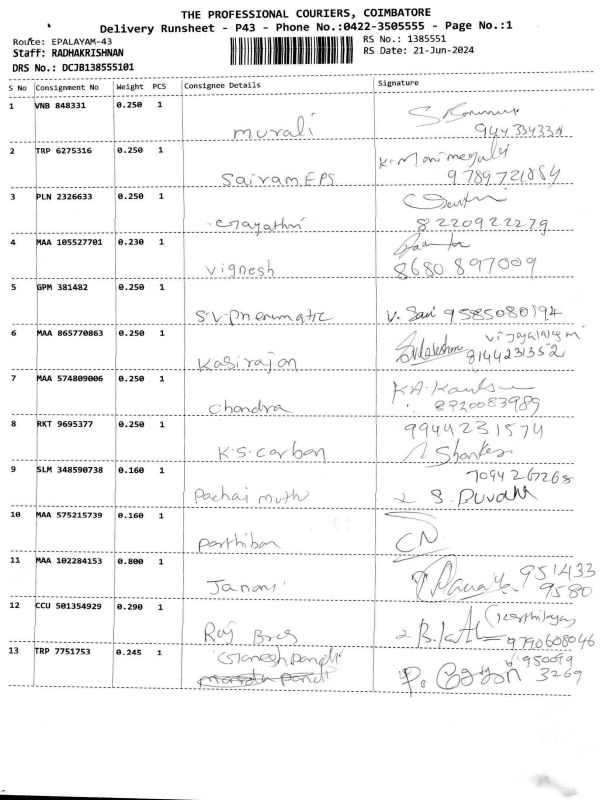 THE PROFESSIONAL COURIERS, COIMBATORE
Delivery Runsheet - P43 - Phone No.:0422-3505555 - Page No.:1
Route: EPALAYAM-43
RS No.: 1385551
Staff: RADHAKRISHNAN
RS Date: 21-Jun-2024
DRS No.: DCJB138555101
S No Consignment No Weight PCS Consignee Details Signature
1 VNB 848331 0.250 1
murali
2 TRP 6275316 0.250 1
K. Manimegala
Sairam EPS 9789721884
3 PLN 2326633 0.250 1
Gayathri 8220922229
4 MAA 105527701 0.230 1
Vignesh 8680897009
5 GPM 381482 0.250 1
S.V. Pneumatic V. Savi 9585080194
6 MAA 865770863 0.250 1
Kasirajan 8144231352
7 MAA 574809006 0.250 1
Chondra 8220083989
8 RKT 9695377 0.250 1
9944231574
K.S. carban Shanker
9 SLM 348590738 0.160 1
7094267268
Pachai muthu
10 MAA 575215739 0.160 1
Parthiban CN
11 MAA 102284153 0.800 1
951433
Janani 9580
12 CCU 501354929 0.290 1
Raj Bros 9790608046
13 TRP 7751753 0.245 1
Ganesh pandi 950019
3269